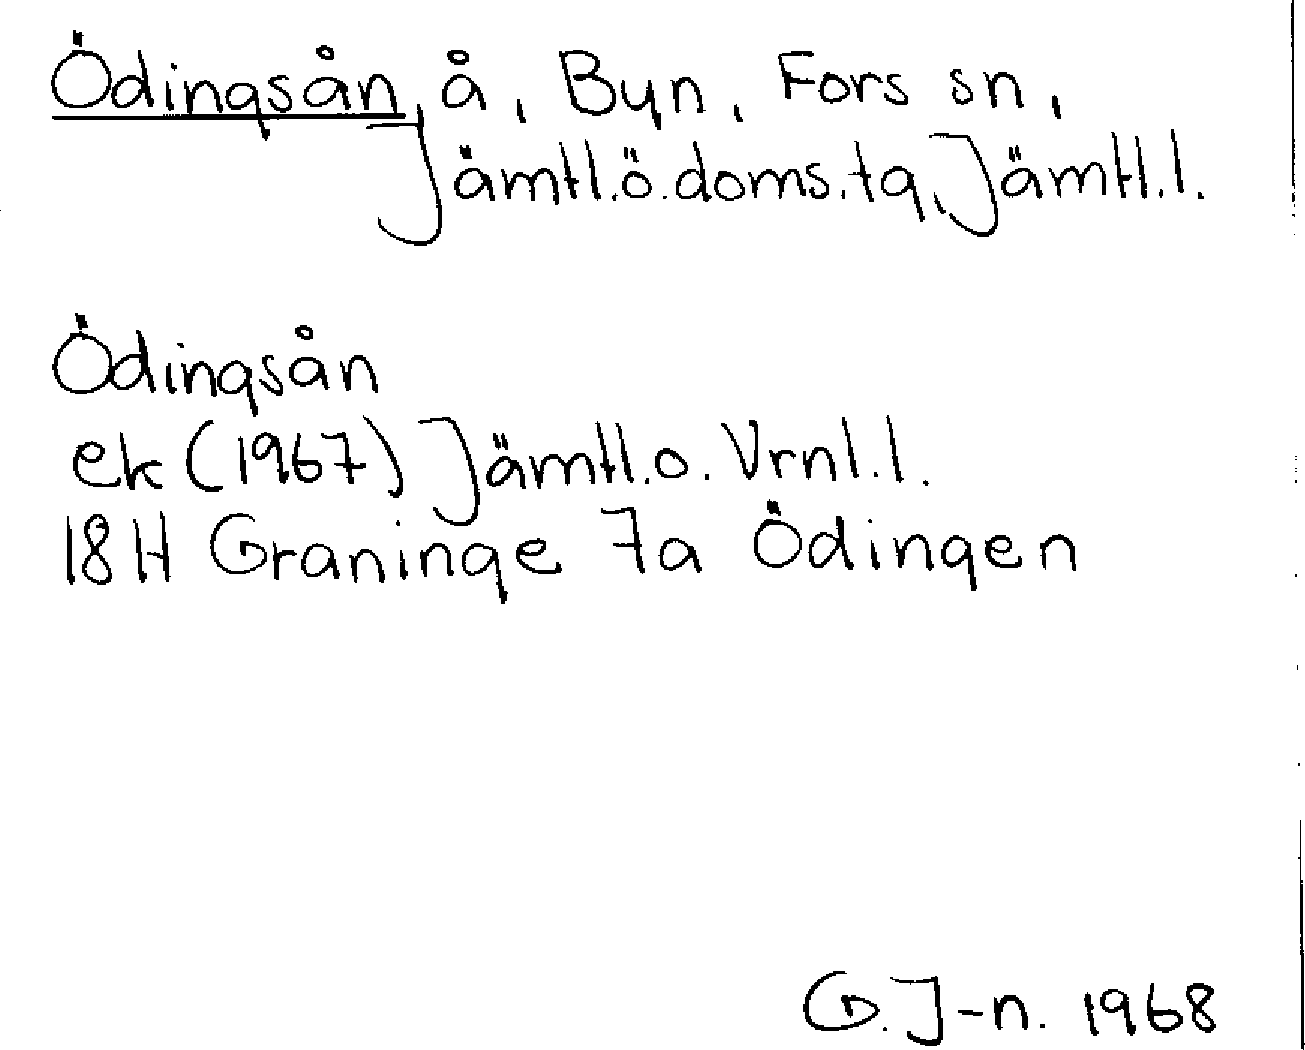 Ödingsån, å, Byn, Fors sn,
Jämtl.ö.doms.tg, Jämtl.l.
Ödingsån
ek (1967) Jämtl.o. Vrnl.l.
18H Graninge 7a Ödingen
G. J-n. 1968